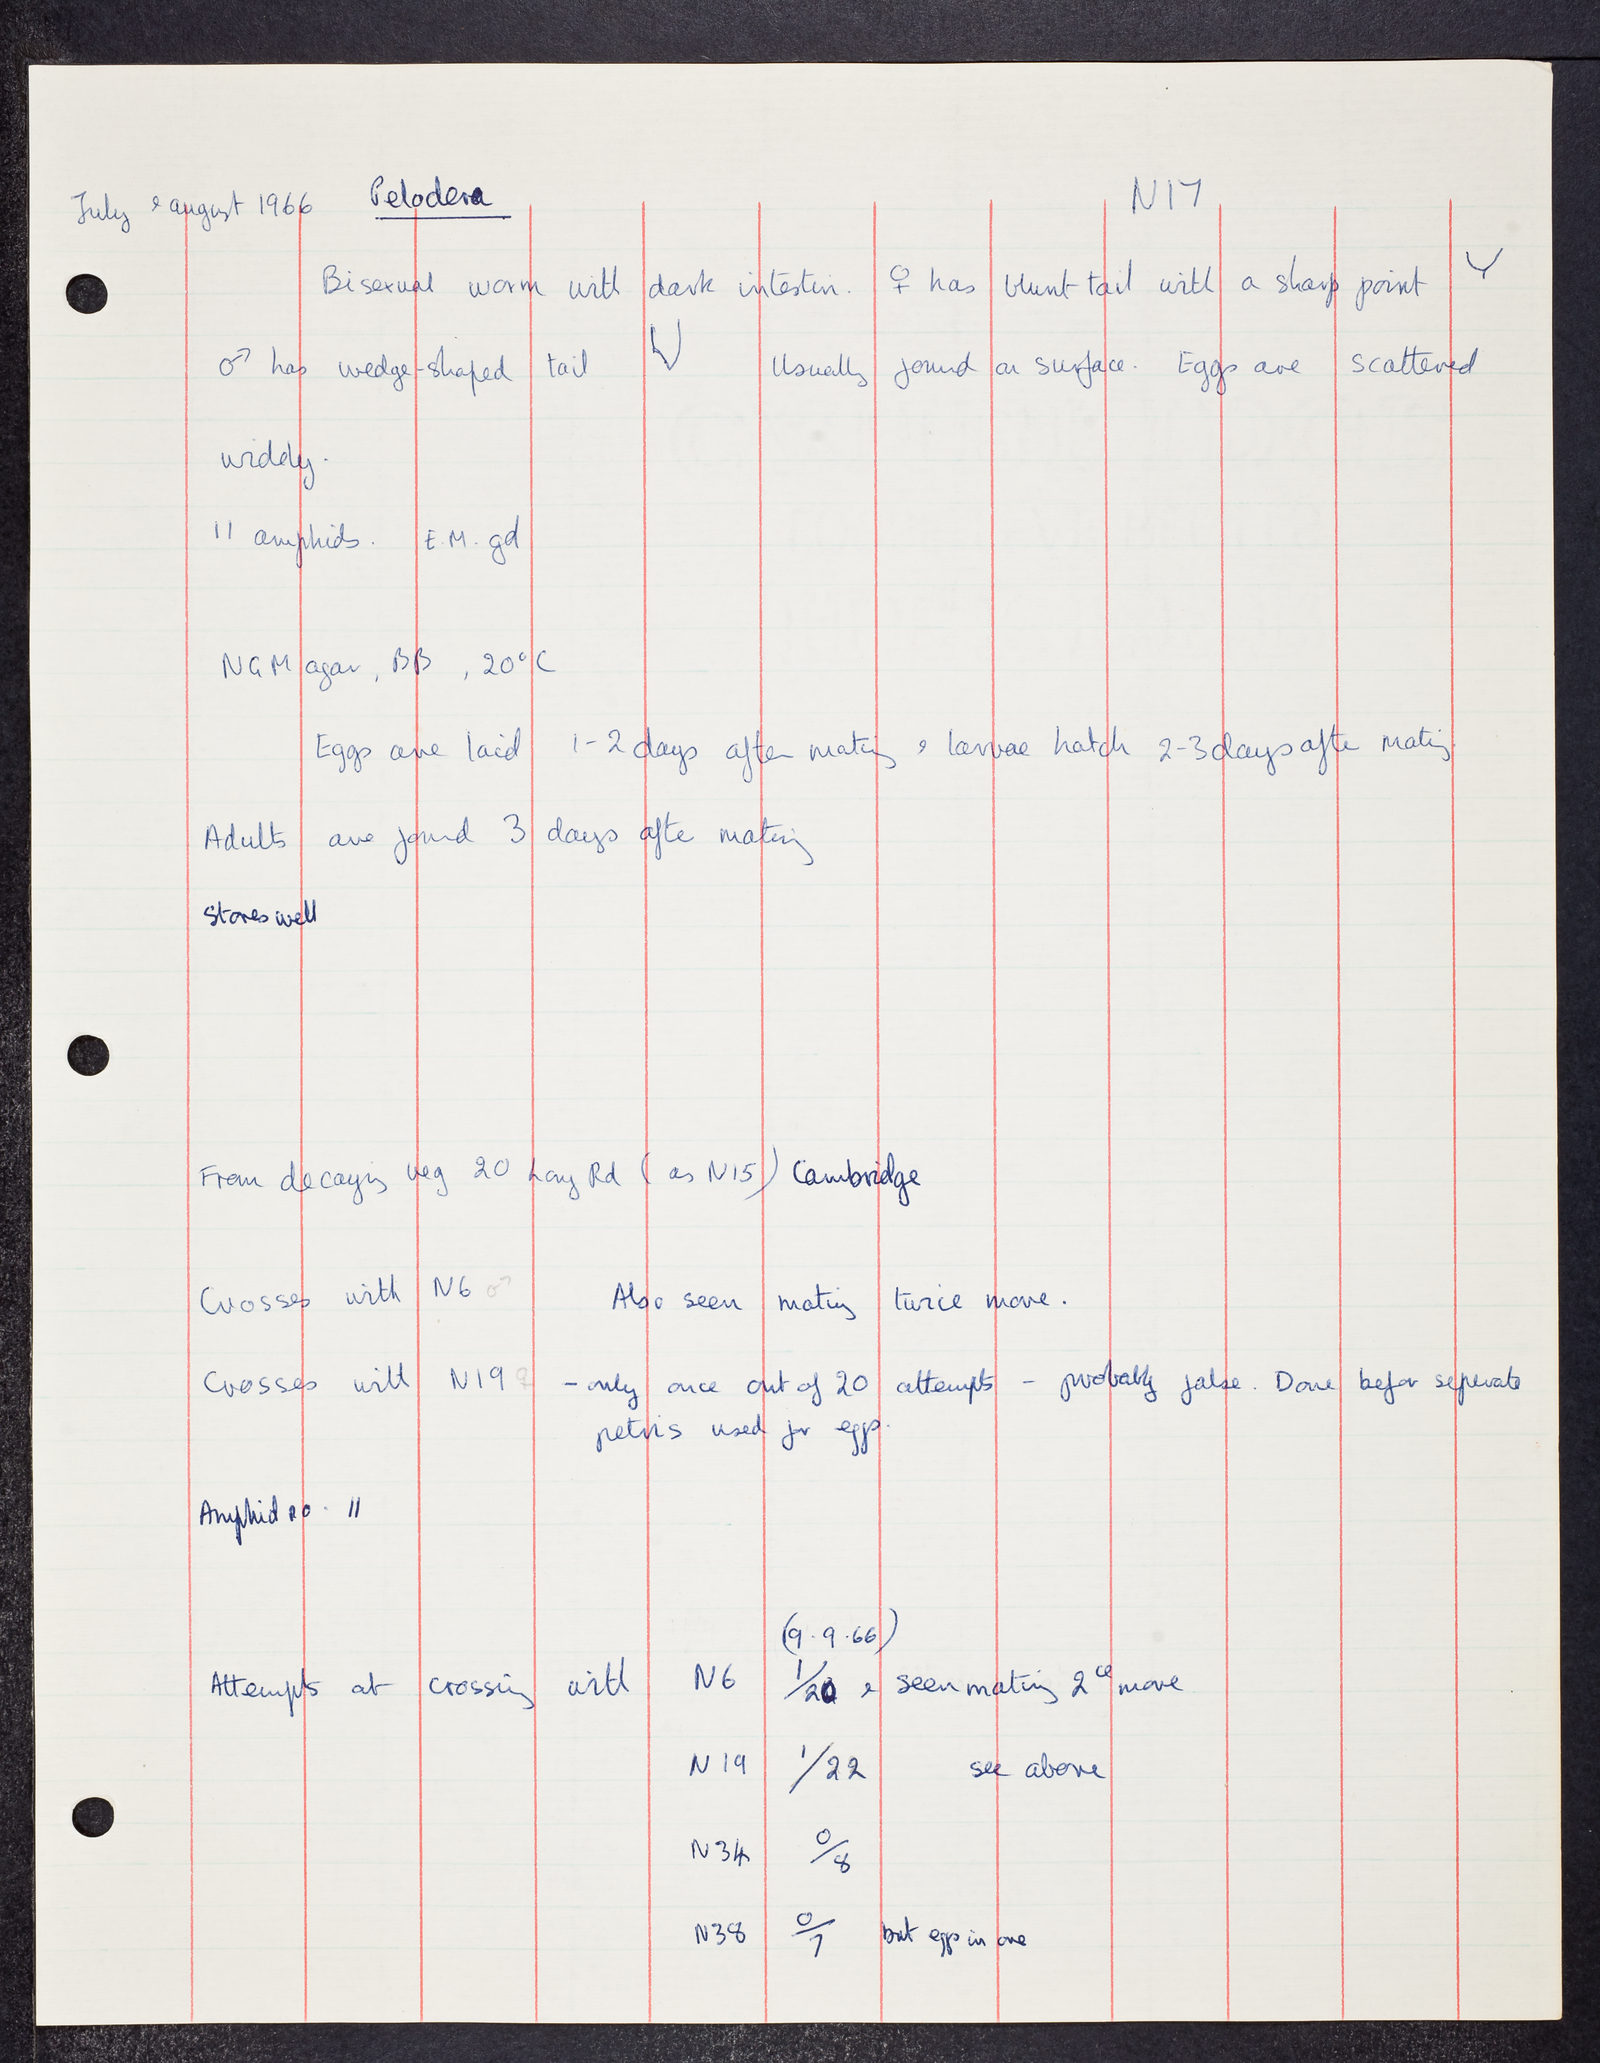 July & august 1966 Pelodera N17
Bisexual worm with dark intestin. ♀ has blunt tail with a sharp point
♂ has wedge-shaped tail Usually found on surface. Eggs are scattered
widely.
11 amphids. E.M. gd
NGM agar, BB, 20°C
Eggs are laid 1-2 days after mating & larvae hatch 2-3 days after mating
Adults are found 3 days after mating
Stores well
From decaying veg 20 Long Rd (as N15) Cambridge
Crosses with N6 ♂ Also seen mating twice more.
Crosses with N19 ♀ - only once out of 20 attempts - probably false. Done befor seperate
petris used for eggs.
Amphid no. 11
(9.9.66)
Attempts at crossing with N6 1/20 & seen mating 2ce more
N19 1/22 see above
N34 0/8
N38 0/7 but eggs in one